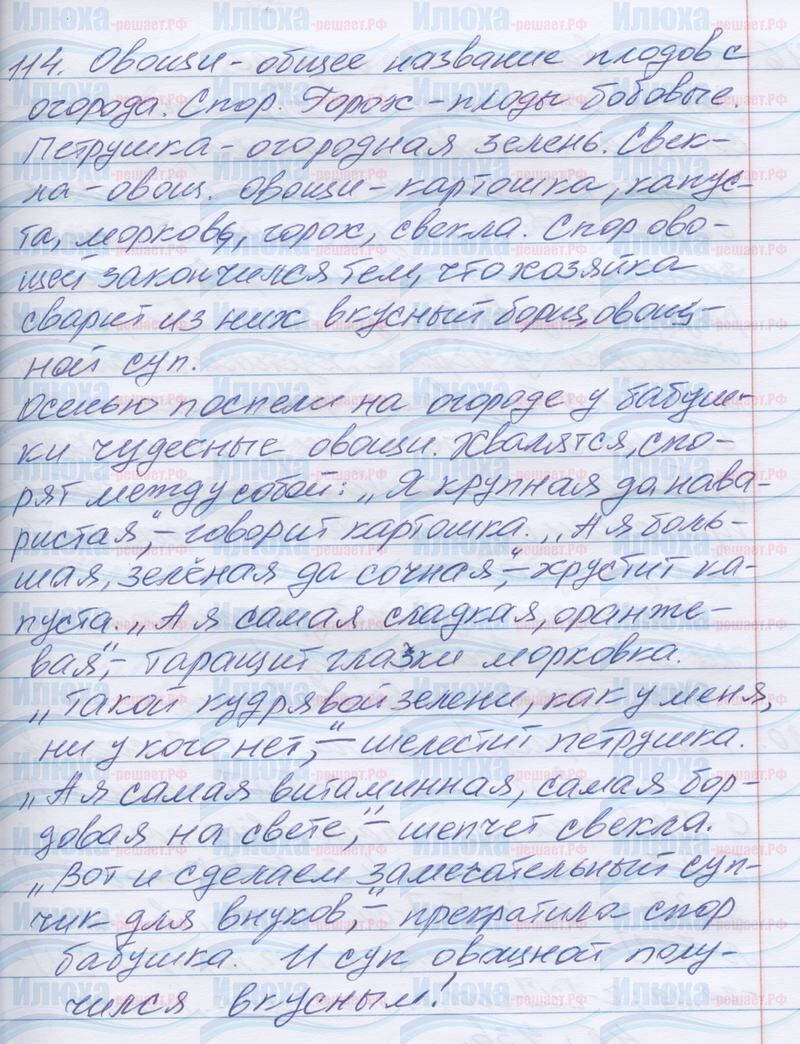 114. Овощи - общее название плодов с
огорода. Спор. Горох - плоды бобовые.
Петрушка - огородная зелень. Свек-
ла - овощ. Овощи - картошка, капус-
та, морковь, горох, свекла. Спор ово-
щей закончился тем, что хозяйка
сварит из них вкусный борщ, овощ-
ной суп.
Осенью поспели на огороде у бабуш-
ки чудесные овощи. Хвалятся, спо-
рят между собой: „Я крупная да нава-
ристая", - говорит картошка. „А я боль-
шая, зелёная да сочная", - хрустит ка-
пуста. „А я самая сладкая, оранже-
вая", - таращит глазки морковка.
„Такой кудрявой зелени, как у меня,
ни у кого нет", - шелестит петрушка.
„А я самая витаминная, самая бор-
довая на свете", - шепчет свекла.
„Вот и сделаем замечательный суп-
чик для внуков", - прекратила спор
бабушка. И суп овощной полу-
чился вкусным!
Илюха-решает.РФ